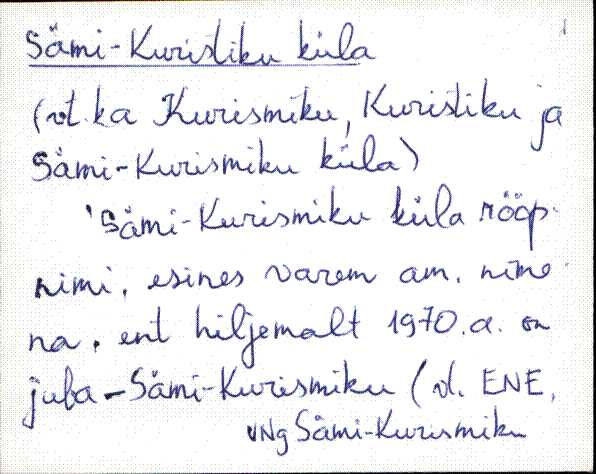 Sämi-Kuristiku küla
(vt. ka Kurismiku, Kuristiku ja
Sämi-Kurismiku küla)
'Sämi-Kurismiku küla rööp-
nimi, esines varem am. nime-
na, ent hiljemalt 1970.a. on
juba - Sämi-Kurismiku (vt. ENE,
VNg Sämi-Kurismiku